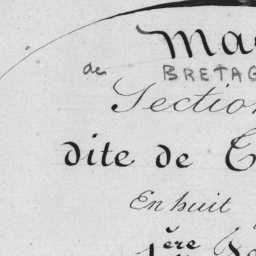 Ma
de BRETAG
Section
dite de C
En huit
1ère